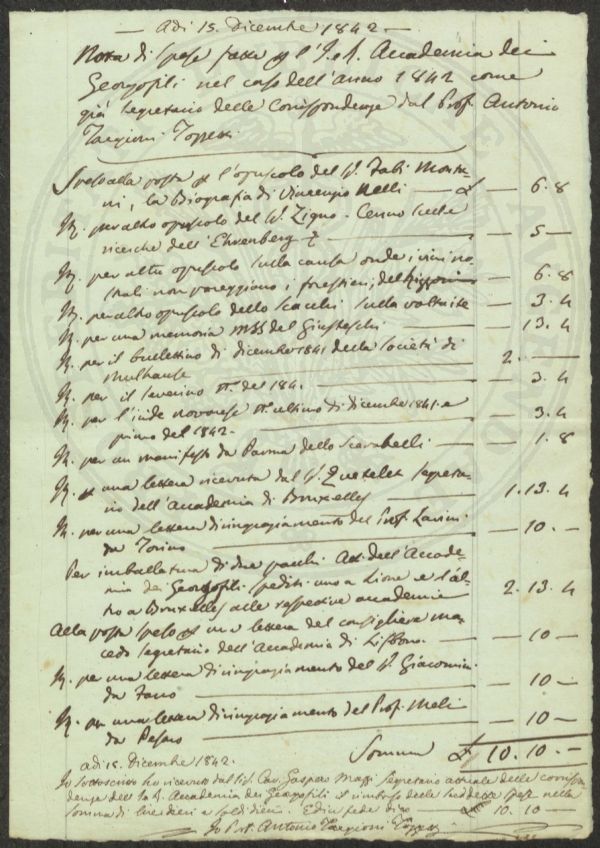 — Adì 15. Dicembre 1842 —
Nota di spese fatte p l'I. e R. Accademia dei
Georgofili nel corso dell'anno 1842 come
già Segretario delle Corrispondenze dal Prof. Antonio
Targioni Tozzetti
Speso alla posta p l'opuscolo del S. Fabi Monta-
ni, la Biografia di Vincenzio Nelli — £ — 6.8
Id. per altro opuscolo del S. Zigno - Cenno sulle
ricerche dell'Ehrenberg — — 5 —
Id. per altro opuscolo sulla causa onde i vini no-
strali non pareggiano i forestieri, del — 6.8
Id. per altro opuscolo dello Scacchi sulla voltaite — — 3.4
Id. per una memoria mss del Giusteschi — — 13.4
Id. per il bullettino di dicembre 1841 della Società di
Mulhause 2. —
Id. per il del 184. — — 3.4
Id. per l' novarese n. ultimo di dicembre 1841. e
primo del 1842. — — 3.4
Id. per un manifesto da Parma dello Scarabelli — — 1.8
Id. p una lettera ricevuta dal S. Quetelet Segreta-
rio dell'Accademia di Bruxelles — 1.13.4
Id. per una lettera di ringraziamento del Prof. Lavini
da Torino — — 10. —
Per imballatura di due pacchi Atti dell'Accade-
mia dei Georgofili spediti uno a Lione e l'al-
tro a Bruxelles alle respective accademie 2.13.4
Alla posta speso p una lettera del consigliere Ma-
cedo Segretario dell'Accademia di Lisbona. — — 10 —
Id. per una lettera di ringraziamento del S. Giacomini
da Fano — — 10 —
Id. per una lettera di ringraziamento del Prof. Meli
da Pesaro — — 10 —
Somma £ 10.10. —
Adì 15. Dicembre 1842.
Io sottoscritto ho ricevuto dal Sig. Cav. Gaspero Segretario attuale delle corrispon-
denze dell'I. e R. Accademia dei Georgofili il rimborso delle suddette spese nella
somma di lire dieci e soldi dieci. E in fede dico 10.10 —
Io Prof. Antonio Targioni Tozzetti